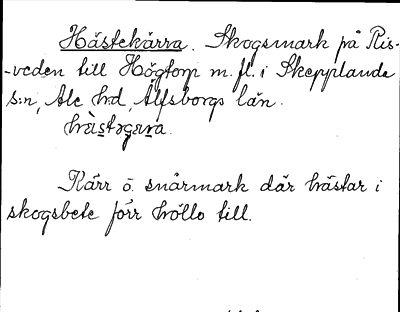 Hästekärra. Skogsmark på Ris-
-veden till Högtorp m. fl. i Skepplanda
s:n, Ale h:d, Älfsborgs län.
Kärr o. snårmark där hästar i
skogsbete förr höllo till.